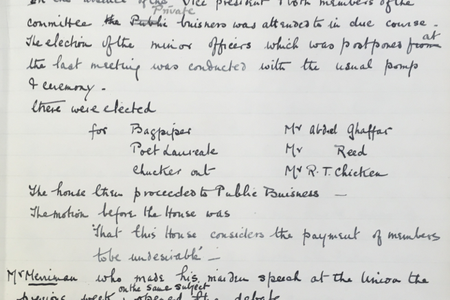 In the absence of the Vice President & both members of the
Private
committee the Public buisness was attended to in due course.
The election of the minor officers which was postponed from at
the last meeting was conducted with the usual pomp
& ceremony.
There were elected
for Bagpiper Mr Abdel Ghaffar
Poet Laureate Mr Reed
Chucker out Mr R.T. Chicken
The house then proceeded to Public Buisness —
The motion before the House was
That this House considers the payment of members
to be undesirable —
Mr Merriman who made his maiden speech at the Union the
on the same subject
previous week opened the debate